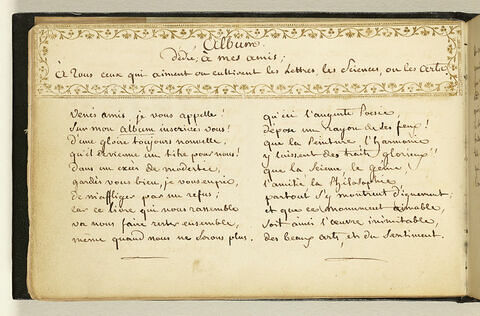 Album.
Dédié, à mes amis;
À tous ceux qui aiment ou cultivent les Lettres, les Sciences, ou les Arts.
Venés amis, je vous appelle!
Sur mon album inscrivés vous!
D'une gloire toujours nouvelle,
qu'il devienne un titre pour nous!
dans un excès de modestie,
gardés vous bien, je vous en prie,
de m'affliger par un refus;
car ce livre qui nous rassemble
va nous faire rester ensemble,
même quand nous ne serons plus.
qu'ici l'auguste Poësie,
dépose un rayon de ses feux!
que la Peinture, l'harmonie
y laissent des traits glorieux!
que la Science, le Génie,
l'amitié la Philosophie
partout s'y montrent dignement;
et que ce monument aimable,
soit ainsi l'œuvre inimitable,
des beaux arts, et du Sentiment.